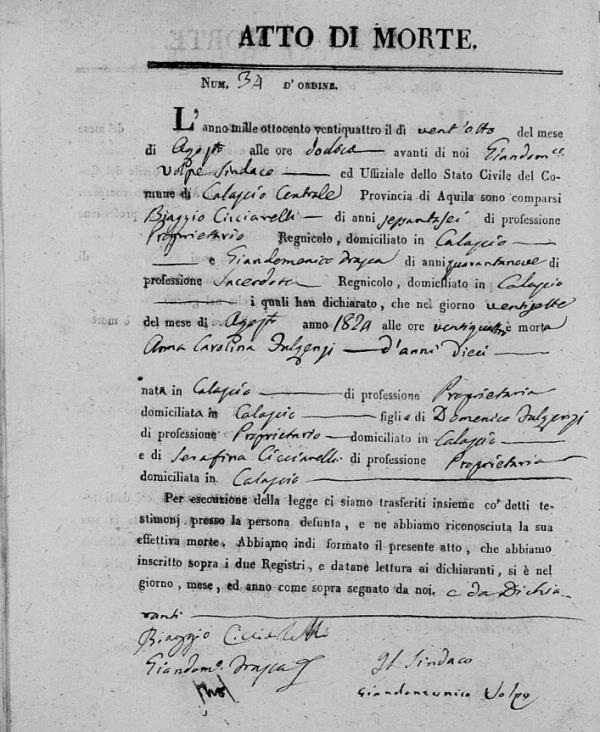 ATTO DI MORTE.
NUM. 34 D'ORDINE.
L'anno mille ottocento ventiquattro il dì vent'otto del mese
di Agosto alle ore dodici avanti di noi Giandom.co
Volpe Sindaco ed Uffiziale dello Stato Civile del Co-
mune di Calascio Centrale Provincia di Aquila sono comparsi
Biaggio Cicciarelli di anni settantasei di professione
Proprietario Regnicolo, domiciliato in Calascio
e Giandomenico di anni quarantanove di
professione Sacerdote Regnicolo, domiciliato in Calascio
i quali han dichiarato, che nel giorno ventisette
del mese di Agosto anno 1824 alle ore ventiquattro è morta
Anna Carolina Fulgenzj d'anni Dieci
nata in Calascio di professione Proprietaria
domiciliata in Calascio figlia di Domenico Fulgenzj
di professione Proprietario domiciliato in Calascio
e di Serafina Cicciarelli di professione Proprietaria
domiciliata in Calascio
Per esecuzione della legge ci siamo trasferiti insieme co' detti te-
stimonj presso la persona defunta, e ne abbiamo riconosciuta la sua
effettiva morte. Abbiamo indi formato il presente atto, che abbiamo
inscritto sopra i due Registri, e datane lettura ai dichiaranti, si è nel
giorno, mese, ed anno come sopra segnato da noi. e da Dichia-
ranti
Biaggio Cicciarelli
Giandom.o
Il Sindaco
Giandomenico Volpe